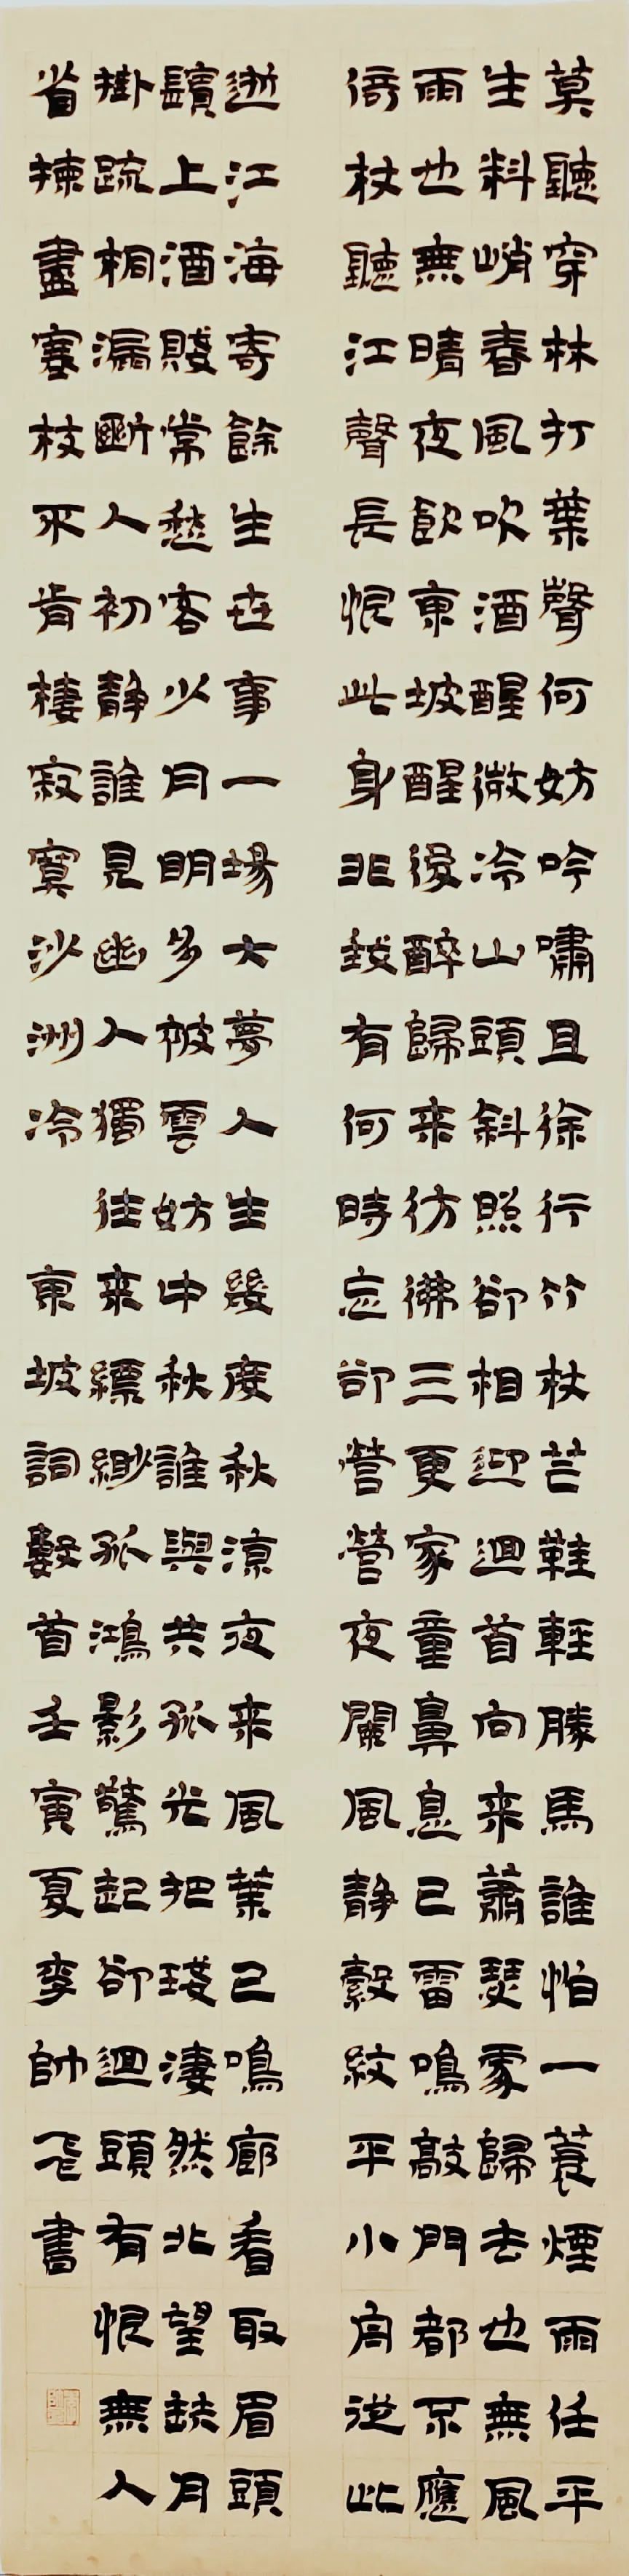 莫聽穿林打葉聲何妨吟嘯且徐行竹杖芒鞋輕勝馬誰怕一蓑煙雨任平
生料峭春風吹酒醒微冷山頭斜照卻相迎迴首向来蕭瑟處歸去也無風
雨也無晴夜飲東坡醒後醉歸来彷彿三更家童鼻息已雷鳴敲門都不應
倚杖聽江聲長恨此身非我有何時忘卻營營夜闌風靜縠紋平小舟從此
逝江海寄餘生世事一場大夢人生幾度秋涼夜来風葉已鳴廊看取眉頭
鬢上酒賤常愁客少月明多被雲妨中秋誰與共孤光把琖淒然北望缺月
掛疏桐漏斷人初靜誰見幽人獨往来縹緲孤鴻影驚起卻迴頭有恨無人
省揀盡寒枝不肯棲寂寞沙洲冷 東坡詞數首壬寅夏李帥飛書